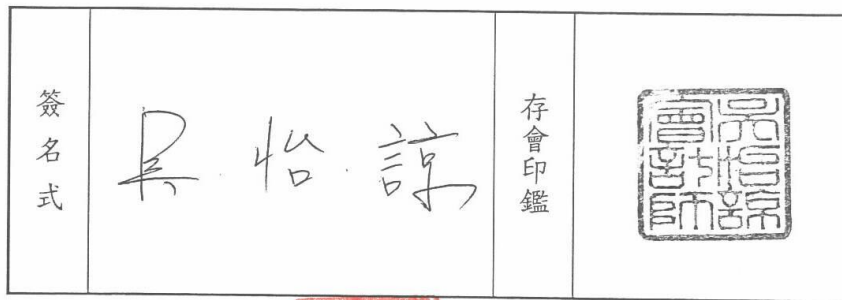 簽名式
吳怡諄
存會印鑑
吳怡諄
會計師